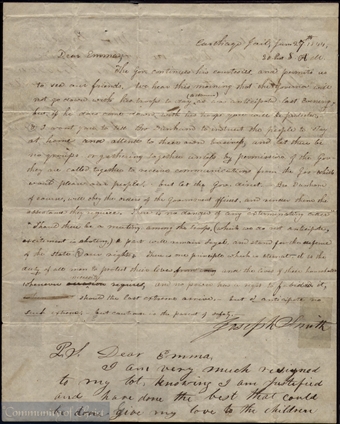 Carthage Jail, June 27th 1844,
20 20 8 A.M.
Dear Emma,
The gov continues his courtesies, and permits us
to see our friends, We hear this morning that the Governor will
not go with his troops to day, as was anticipated last Evening,
but if he does come with his troops you will be protected,
I want you to tell Bro Dunham to instruct the people to stay
at home and attend to their own business, and let there be
no groups or gathering together unless by permission of the Gov
they are called together to receive communications from the Gov which
would please our people, but let the Gov. direct. Bro Dunham
of course, will obey the orders of the government officers, and render them the
assistance they require. There is no danger of any exterminating order
Should there be a mutiny among the troops, (which we do not anticipate,
excitement is abating,) a part will remain loyal, and stand for the defence
of the State & our rights; There is one principle which is eternal, it is the
duty of all men to protect their lives from and the lives of their households
whenever occasion requires, and no power has a right to forbid it,
should the last extreme arrive, but I anticipate no
such extreme, but caution is the parent of safety,
Joseph Smith
P.S. Dear Emma,
I am very much resigned
to my lot, knowing I am justified
and have done the best that could
be done give my love to the children
Community of Christ